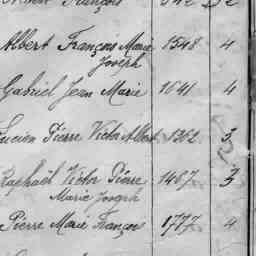 François 642
Albert François Marie 1548 4
Joseph
Gabriel Jean Marie 1641 4
Lucien Pierre Victor Albert 1362 3
Raphaël Victor Pierre 1467 3
Marie Joseph
Pierre Marie François 1777 4